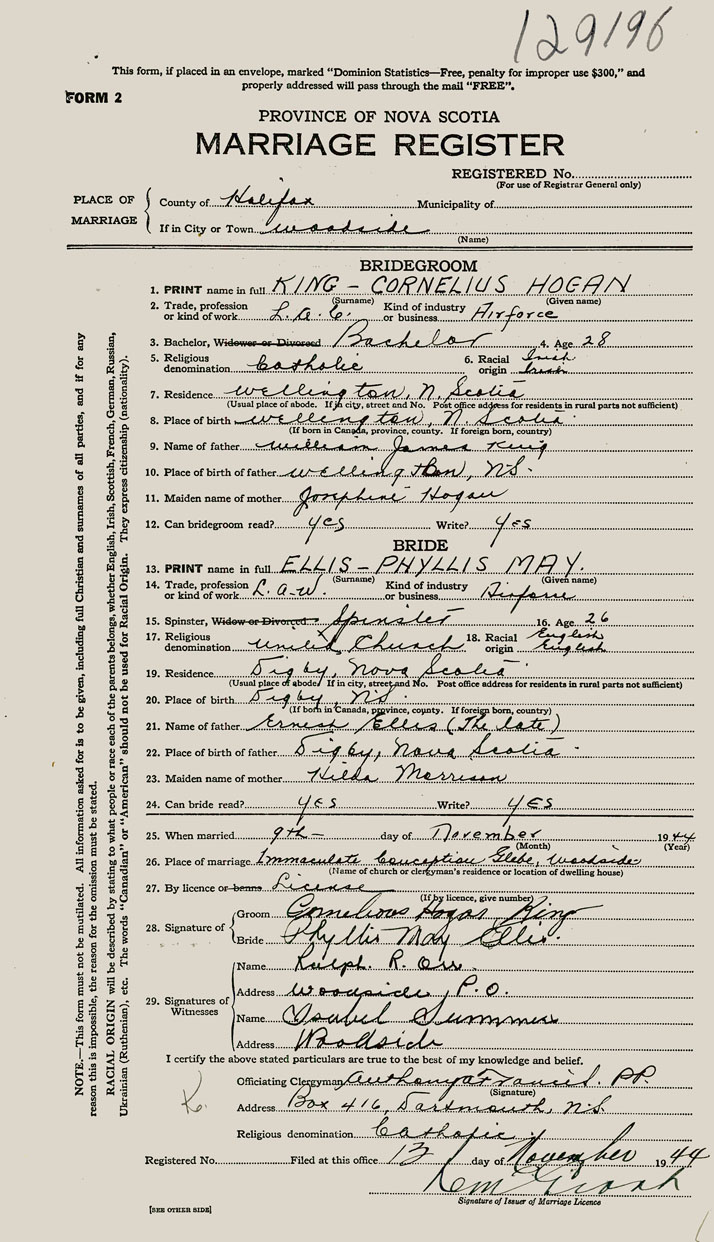 129196
This form, if placed in an envelope, marked "Dominion Statistics—Free, penalty for improper use $300," and
properly addressed will pass through the mail "FREE".
FORM 2
PROVINCE OF NOVA SCOTIA
MARRIAGE REGISTER
REGISTERED No.
(For use of Registrar General only)
PLACE OF MARRIAGE
County of Halifax Municipality of
If in City or Town Woodside
(Name)
BRIDEGROOM
1. PRINT name in full KING - CORNELIUS HOGAN
(Surname) (Given name)
2. Trade, profession or kind of work L.A.C. Kind of industry or business Airforce
3. Bachelor, Widower or Divorced Bachelor 4. Age 28
5. Religious denomination Catholic 6. Racial origin Irish Irish
7. Residence Wellington, N. Scotia
(Usual place of abode. If in city, street and No. Post office address for residents in rural parts not sufficient)
8. Place of birth Wellington, N. Scotia
(If born in Canada, province, county. If foreign born, country)
9. Name of father William James King
10. Place of birth of father Wellington, NS.
11. Maiden name of mother Josephine Hogan
12. Can bridegroom read? yes Write? yes
BRIDE
13. PRINT name in full ELLIS - PHYLLIS MAY.
(Surname) (Given name)
14. Trade, profession or kind of work L.A.W. Kind of industry or business Airforce
15. Spinster, Widow or Divorced Spinster 16. Age 26
17. Religious denomination United Church 18. Racial origin English English
19. Residence Digby, Nova Scotia
(Usual place of abode. If in city, street and No. Post office address for residents in rural parts not sufficient)
20. Place of birth Digby, NS
(If born in Canada, province, county. If foreign born, country)
21. Name of father Ernest Ellis (The late)
22. Place of birth of father Digby, Nova Scotia
23. Maiden name of mother Hilda Morrison
24. Can bride read? yes Write? yes
25. When married 9th day of November 1944
(Month) (Year)
26. Place of marriage Immaculate Conception Glebe, Woodside
(Name of church or clergyman's residence or location of dwelling house)
27. By licence or banns License
(If by licence, give number)
28. Signature of
Groom Cornelious Hogan King
Bride Phyllis May Ellis.
29. Signatures of Witnesses
Name Ralph. R. Orr
Address Woodside, P.O.
Name Isabel
Address Woodside
I certify the above stated particulars are true to the best of my knowledge and belief.
Officiating Clergyman P.P.
(Signature)
Address Box 416, Dartmouth, N.S.
Religious denomination Catholic
Registered No. Filed at this office 13 day of November 1944
Signature of Issuer of Marriage Licence
[SEE OTHER SIDE]
NOTE.—This form must not be mutilated. All information asked for is to be given, including full Christian and surnames of all parties, and if for any
reason this is impossible, the reason for the omission must be stated.
RACIAL ORIGIN will be described by stating to what people or race each of the parents belongs, whether English, Irish, Scottish, French, German, Russian,
Ukrainian (Ruthenian), etc. The words "Canadian" or "American" should not be used for Racial Origin. They express citizenship (nationality).